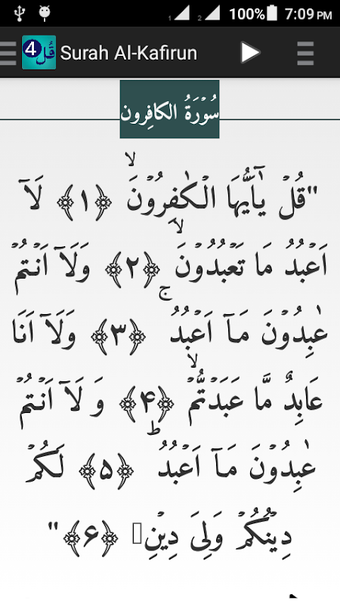 100% 7:09 PM
4 قُل Surah Al-Kafirun
سُوْرَةُ الكافِرون
"قُلْ يٰۤاَيُّهَا الْكٰفِرُوْنَۙ ﴿۱﴾ لَاۤ
اَعْبُدُ مَا تَعْبُدُوْنَۙ ﴿۲﴾ وَلَاۤ اَنْتُمْ
عٰبِدُوْنَ مَاۤ اَعْبُدُۚ ﴿۳﴾ وَلَاۤ اَنَا
عَابِدٌ مَّا عَبَدْتُّمْۙ ﴿۴﴾ وَ لَاۤ اَنْتُمْ
عٰبِدُوْنَ مَاۤ اَعْبُدُؕ ﴿۵﴾ لَكُمْ
دِيْنُكُمْ وَلِىَ دِيْنِ ﴿۶﴾"